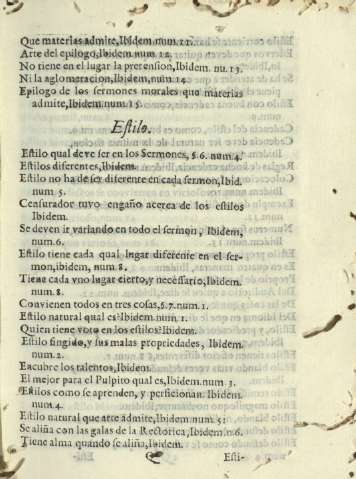 Que materias admite, Ibidem num. 11.
Arte del epilogo, Ibidem num. 12.
No tiene en el lugar la pretension, Ibidem. nu. 13.
Ni la aglomeracion, Ibidem, num. 14
Epilogo de los sermones morales que materias
admite, Ibidem. num. 15.
Estilo.
Estilo qual deve ser en los Sermones, §. 6. num. 4.
Estilos diferentes, Ibidem.
Estilo no ha de ser diferente en cada sermon, Ibid.
num. 5.
Censurador tuvo engaño acerca de los estilos
Ibidem.
Se deven ir variando en todo el sermon, Ibidem,
num. 6.
Estilo tiene cada qual, lugar diferente en el ser-
mon, ibidem, num. 8.
Tiene cada vno lugar cierto, y necessario, Ibidem.
num. 8.
Convienen todos en tres cosas, §. 7. num. 1.
Estilo natural qual es? Ibidem num. 1.
Quien tiene voto en los estilos? Ibidem.
Estilo fingido, y sus malas propriedades, Ibidem.
num. 2.
Encubre los talentos, Ibidem.
El mejor para el Pulpito qual es, Ibidem. num. 3.
Estilos como se aprenden, y perficionan. Ibidem.
num. 4.
Estilo natural que arte admite, Ibidem num. 5:
Se aliña con las galas de la Rectorica, Ibidem n. 6.
Tiene alma quando se aliña, Ibidem.
Esti-